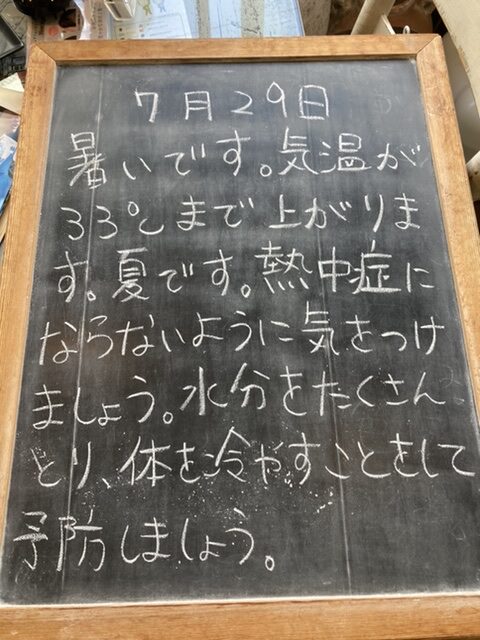 7月29日
暑いです。気温が
33℃まで上がりま
す。夏です。熱中症に
ならないように気をつけ
ましょう。水分をたくさん
とり、体を冷やすことをして
予防しましょう。